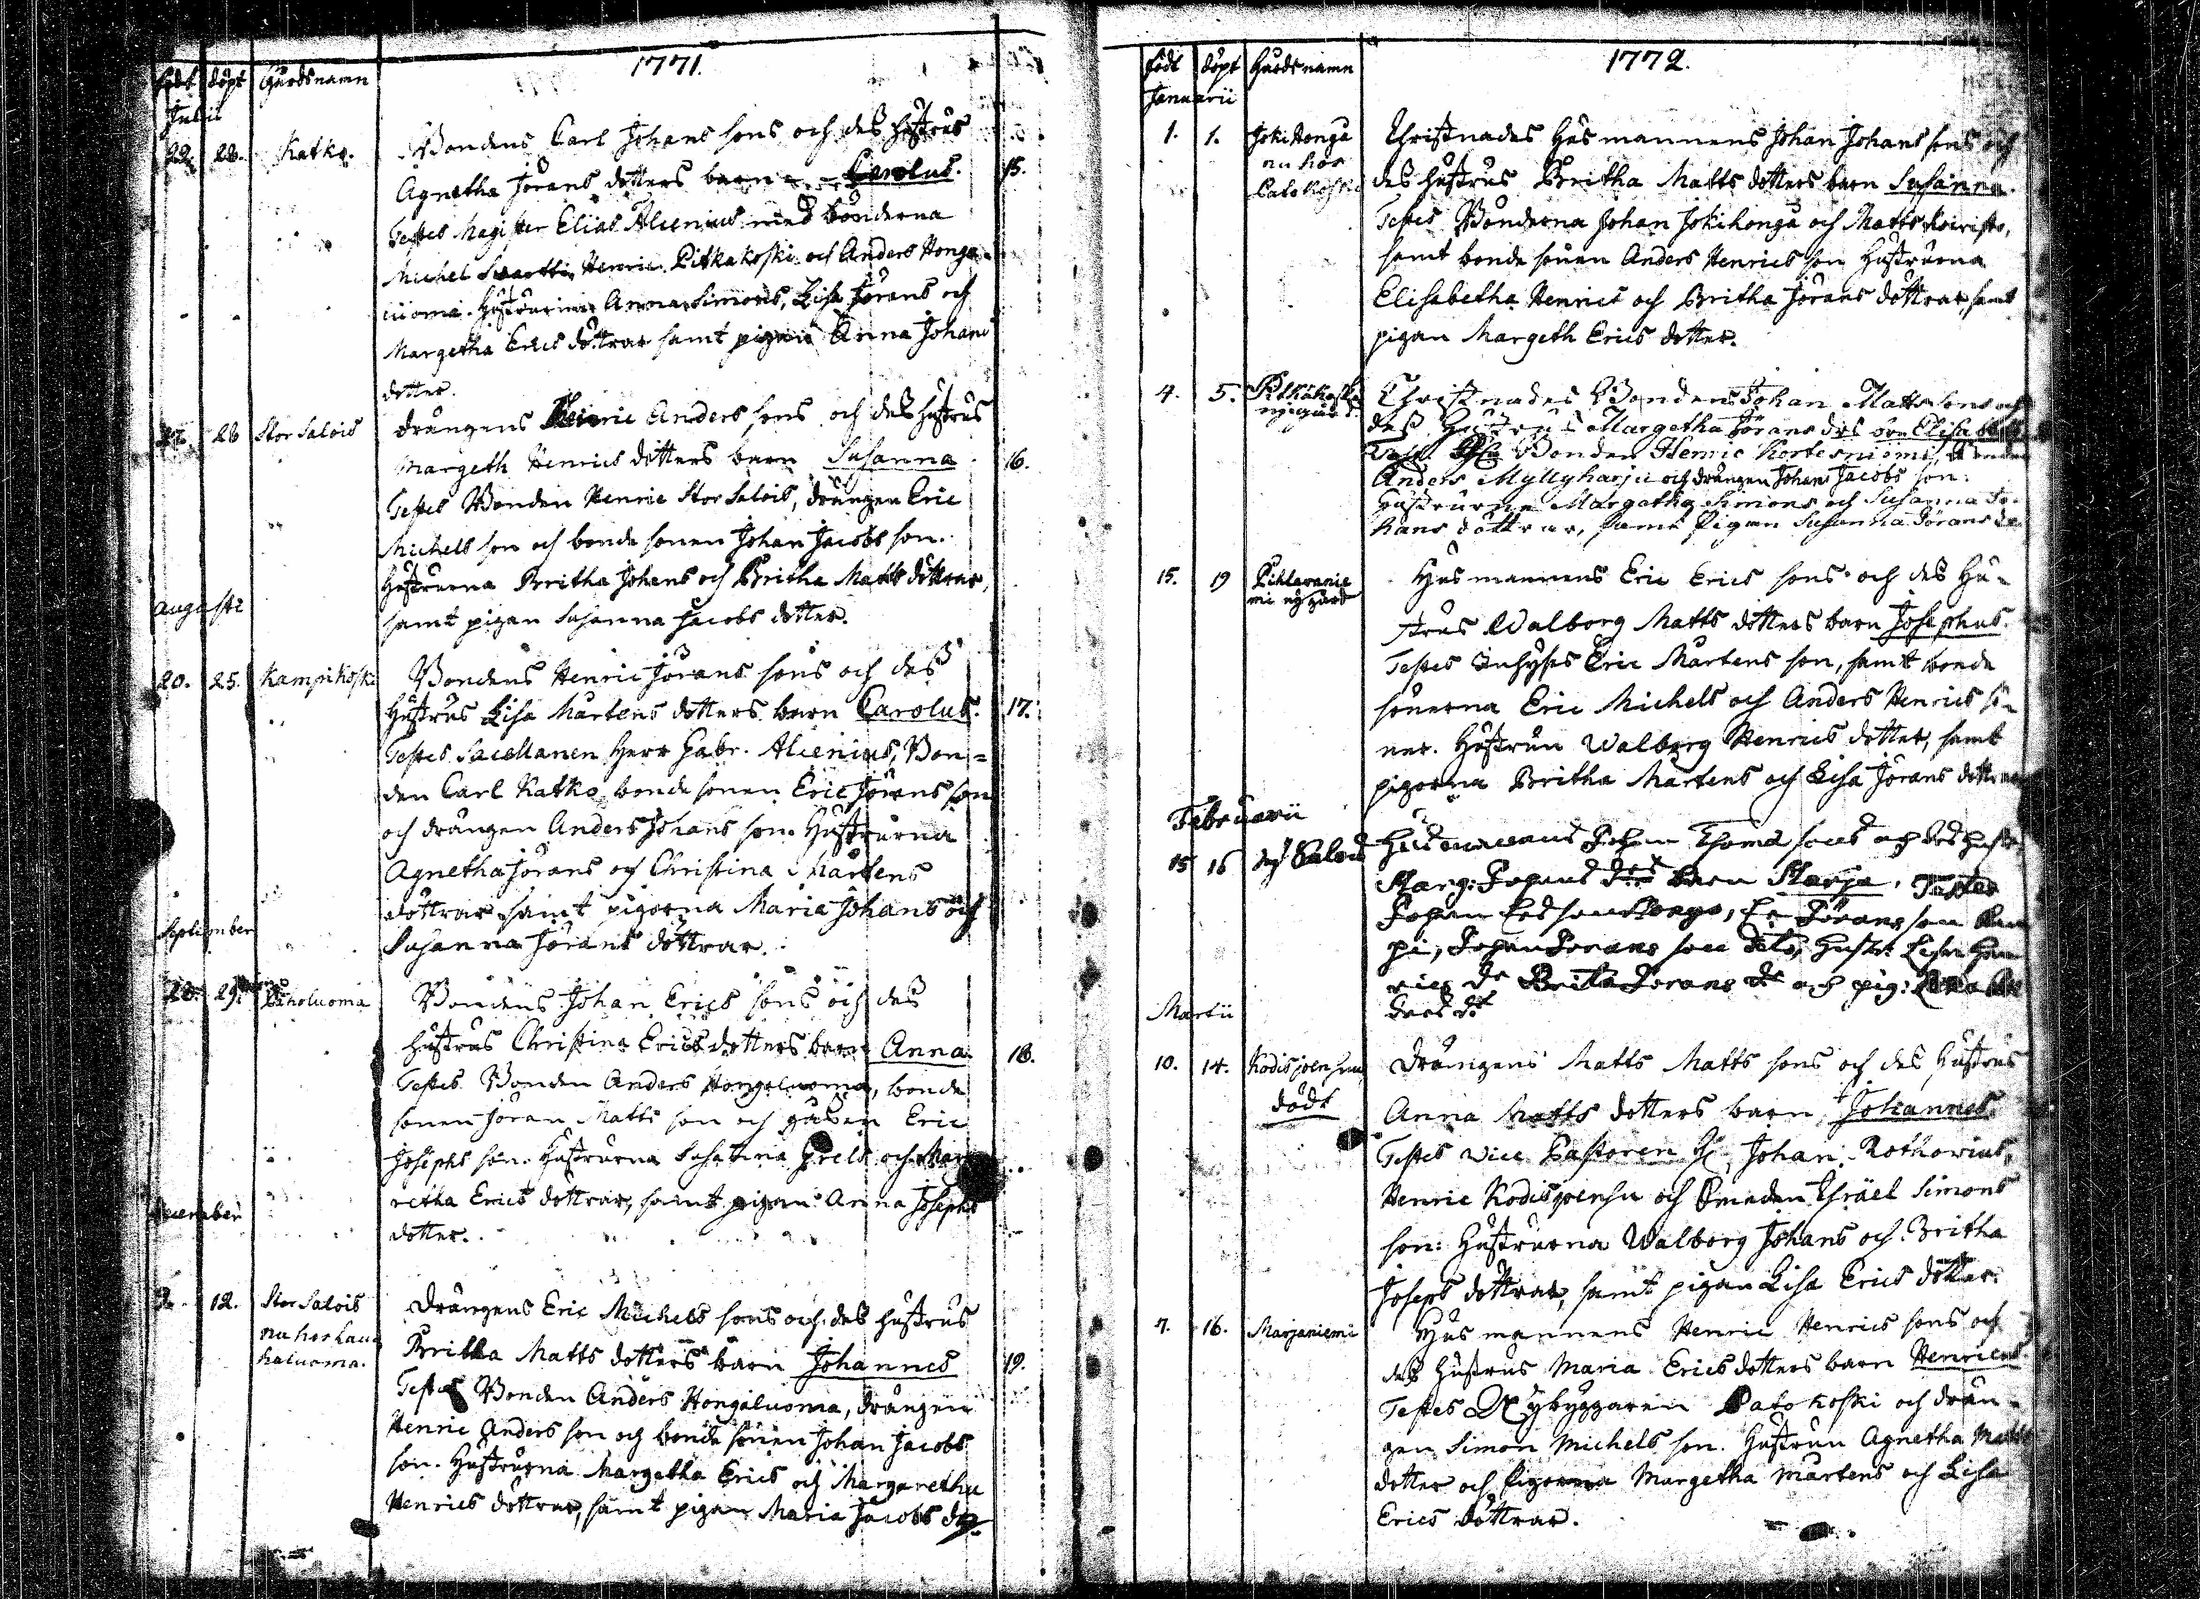 1771.
födt döpt Gårdsnamn
Julii
22. 28. Katko. Bondens Carl Johans sons och des hustrus
Agnetha Jörans dotters barn Carolus. 15.
Testes Magister Elias Alcenius med bönderna
Michel Swartti, Henric Pitkäkoski och Anders Honga-
luoma. Hustrurna Anna Simons, Lisa Jörans och
Margetha Erics döttrar samt pigan Anna Johans
dotter.
28 Stor Salois Drängens Henric Anders sons och des hustrus
Margeth Henrics dotters barn Susanna 16.
Testes Bonden Henric Stor Salois, drängen Eric
Michels son och bonde sonen Johan Jacobs son.
Hustrurna Britha Johans och Britha Matts döttrar,
Augusti
samt pigan Susanna Jacobs dotter.
20. 25. Kampikoski Bondens Henric Jörans sons och des
Hustrus Lisa Mårtens dotters barn Carolus. 17.
Testes Sacellanen Herr Gabr. Alcenius, Bon=
den Carl Katko bonde sonen Eric Jörans son
och drängen Anders Johans son. Hustrurna
Agnetha Jörans och Christina Mårtens
döttrar samt pigorna Maria Johans och
September
Susanna Jörans döttrar.
28. 29. Bondens Johan Erics sons och des
hustrus Christina Erics dotters barn Anna 18.
Testes Bonden Anders Hongaluoma, bonde
sonen Jöran Matts son och Eric
Josephs son. Hustrurna Susanna Grels och Mar
retha Erics döttrar, samt pigan Anna Josephs
December
dotter.
12. Stor Salois Drängens Eric Michels sons och des hustrus
nu hos Lau
haluoma. Britha Matts dotters barn Johannes 19.
Testes Bonden Anders Hongaluoma, drängen
Henric Anders son och bonde sonen Johan Jacobs
son. Hustrurna Margetha Erics och Margaretha
Henrics döttrar, samt pigan Maria Jacobs
1772.
födt döpt Gårdsnamn
Januarii
1. 1. Jokihonga Christnades Husmannens Johan Johans sons och
nu hos
Patokoski des hustrus Britha Matts dotters barn Susanna.
Testes Bönderna Johan Jokihonga och Matts Koiristo,
samt bonde sonen Anders Henrics son Hustrurna
Elisabetha Henrics och Britha Jörans döttrar, samt
pigan Margeth Erics dotter.
4. 5. Pitkäkoski Christnades Bondens Johan Matts sons och
nygård
des Hustrus Margetha Jörans drs barn Elisabeth
Bonden Henric Kortesniomi,
Anders Myllyharju och drängen Johan Jacobs son:
Hustrurna Margetha Simons och Susanna Jo-
hans döttrar, samt Pigan Susanna Jörans
15. 19 Pihlavanie Husmannens Eric Erics sons och des Hu-
mi nygård
strus Walborg Matts dotters barn Josephus.
Testes Inhyses Eric Mårtens son, samt bonde
sönerna Eric Michels och Anders Henrics sö-
ner. Hustrun Walborg Henrics dotter, samt
pigorna Britha Mårtens och Lisa Jörans
Februarii
15 16 Ny Salois Husmannens Johan Thomæ sons och des hust:
Marg: Johans barn Marja. Testes
Johan Jörans son
pi, Johan Jörans son dito, Hustr: Lisa Hen
rics Dr Brita Jörans Dr och pig:
Martii
10. 14. Kodisjoensuu Drängens Matts Matts sons och des Hustrus
dödt
Anna Matts dotters barn Johannes.
Testes vice Pastoren H: Johan Rothovius,
Henric Kodisjoensu och Smeden Israel Simons
son: Hustrurna Walborg Johans och Britha
Joseps döttrar, samt pigan Lisa Erics dotter.
7. 16. Marjaniemi Husmannens Henric Henrics sons och
des Hustrus Maria Erics dotters barn Henricus
Testes Nybyggaren Patokoski och drän-
gen Simon Michels son. Hustrun Agnetha Matts
dotter och Pigorna Margetha Mårtens och Lisa
Erics döttrar.